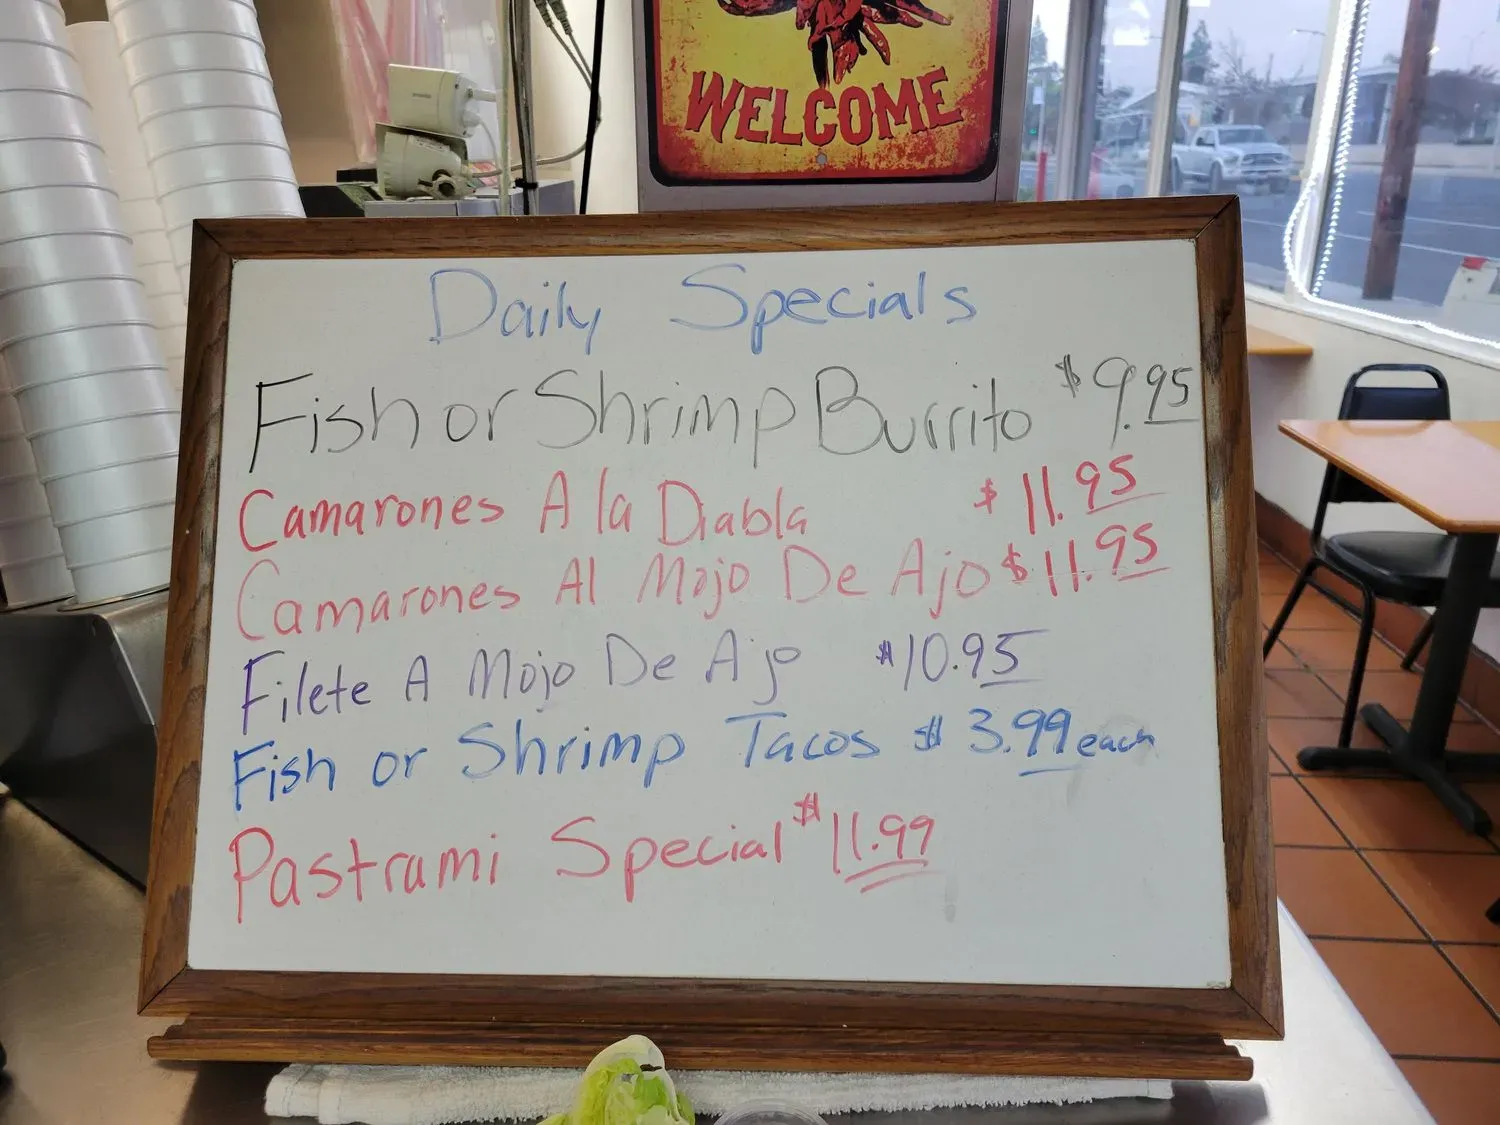 WELCOME
Daily Specials
Fish or Shrimp Burrito $9.95
Camarones A la Diabla $11.95
Camarones Al Mojo De Ajo $11.95
Filete A Mojo De Ajo $10.95
Fish or Shrimp Tacos $3.99 each
Pastrami Special $11.99